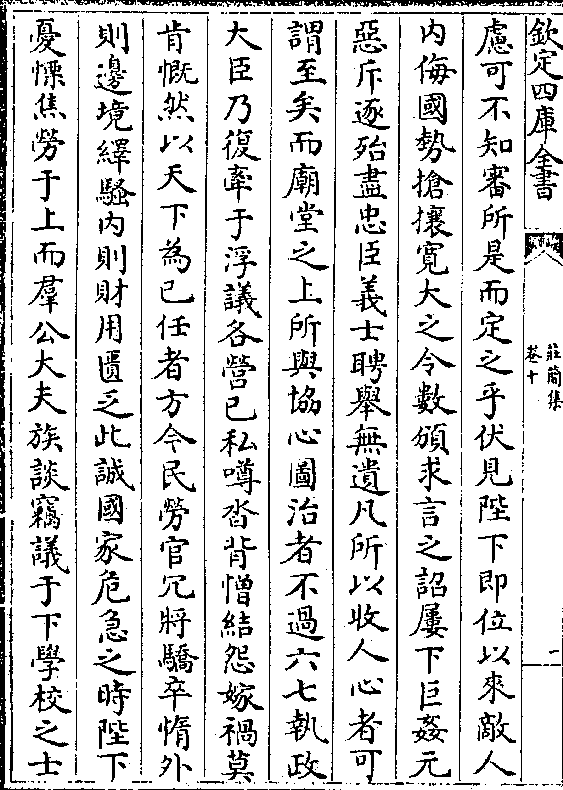 欽定四庫全書
莊簡集
卷十
一
慮可不知審所是而定之乎伏見陛下即位以來敵人
内侮國勢搶攘寛大之令數頒求言之詔屢下巨姦元
惡斥逐殆盡忠臣義士聘舉無遺凡所以收人心者可
謂至矣而廟堂之上所與協心圖治者不過六七執政
大臣乃復牽于浮議各營已私噂沓背憎結怨嫁禍莫
肯慨然以天下為已任者方今民勞官冗將驕卒惰外
則邊境繹騷内則財用匱乏此誠國家危急之時陛下
憂慄焦勞于上而羣公大夫族談竊議于下學校之士